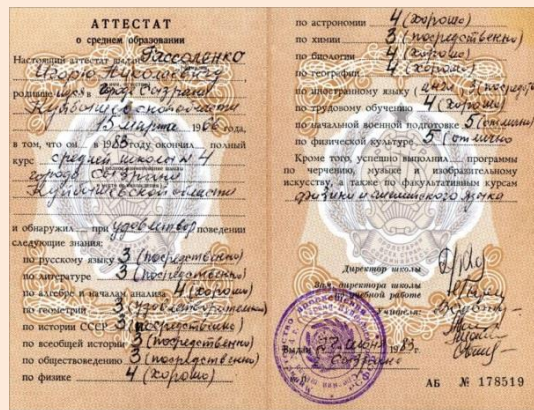 АТТЕСТАТ
о среднем образовании
Настоящий аттестат выдан Гассоленко
Игорю Николаевичу
родившемуся в городе Сызрани
Куйбышевской области
15 марта 1966 года,
в том, что он в 1983 году окончил полный
курс средней школы № 4
города Сызрани
Куйбышевской области
и обнаружил при удовлетвор поведении
следующие знания:
по русскому языку 3 (посредственно)
по литературе 3 (посредственно)
по алгебре и началам анализа 4 (хорошо)
по геометрии 3
по истории СССР 3 (посредственно)
по всеобщей истории 3 (посредственно)
по обществоведению 3 (посредственно)
по физике 4 (хорошо)
по астрономии 4 (хорошо)
по химии 3 (посредственно)
по биологии 4 (хорошо)
по географии 4 (хорошо)
по иностранному языку (англ.) 3 (посредств
по трудовому обучению 4 (хорошо)
по начальной военной подготовке 5 (отлично)
по физической культуре 5 (отлично)
Кроме того, успешно выполнил программы
по черчению, музыке и изобразительному
искусству, а также по факультативным курсам
физики и английского языка
Директор школы
Зам. директора школы
по учебной работе
Учителя:
Выдан 22 июня 1983
г. Сызрань
АБ № 178519